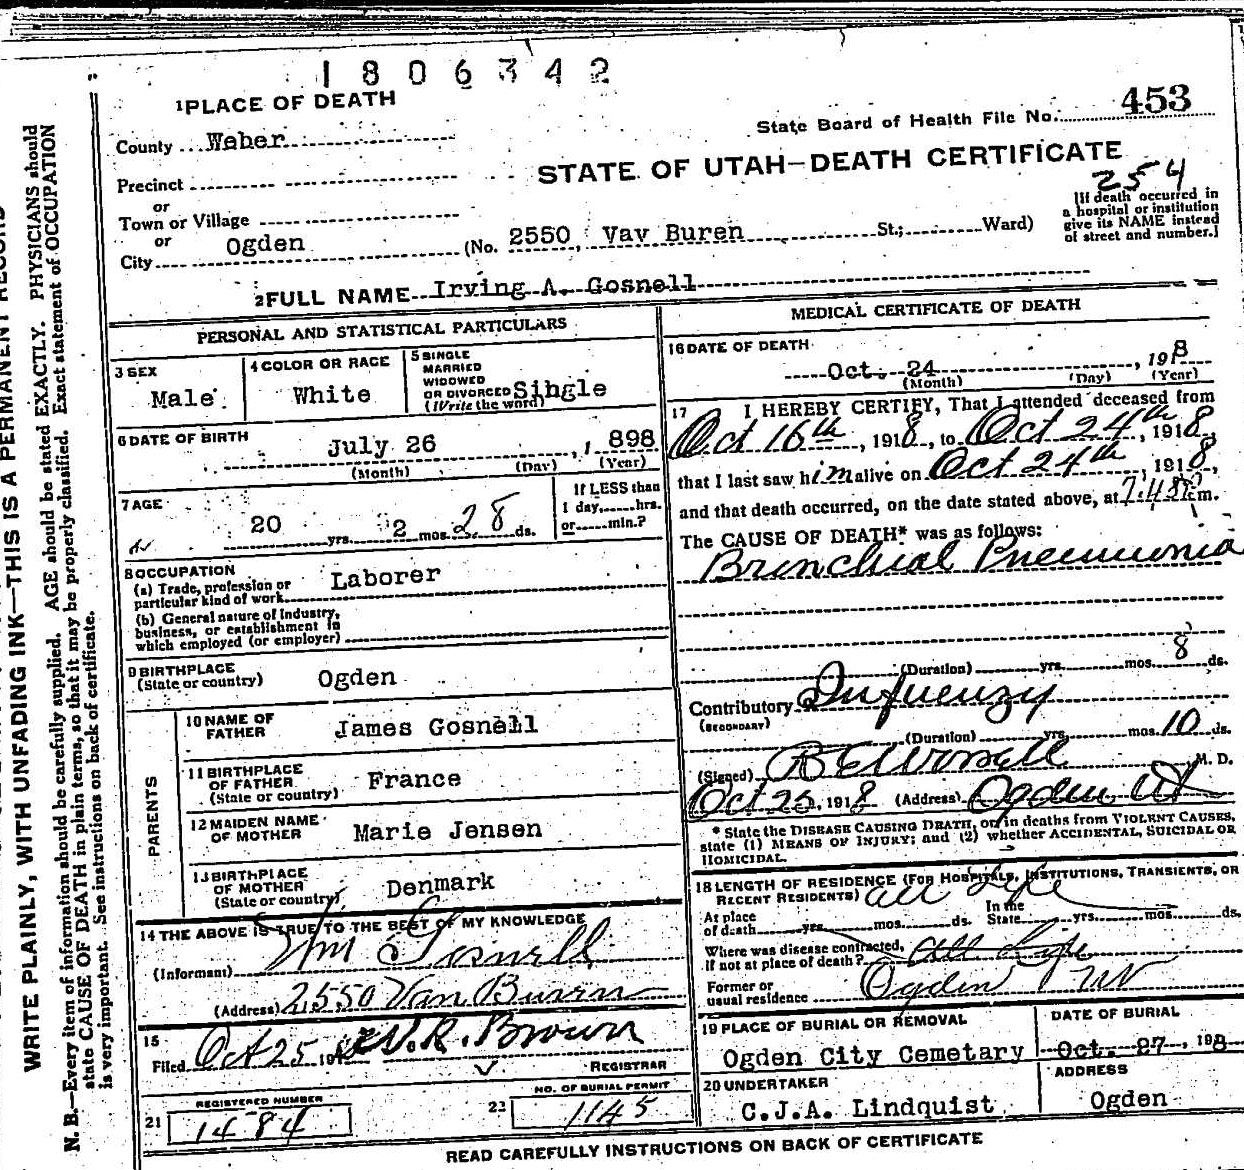 1806342
1 PLACE OF DEATH
State Board of Health File No. 453
County Weber
STATE OF UTAH—DEATH CERTIFICATE
254
Precinct
or
Town or Village
or
City Ogden (No. 2550, Vav Buren St.; Ward)
[If death occurred in
a hospital or institution
give its NAME instead
of street and number.]
2 FULL NAME Irving A. Gosnell
PERSONAL AND STATISTICAL PARTICULARS
3 SEX
Male
4 COLOR OR RACE
White
5 SINGLE
MARRIED
WIDOWED
OR DIVORCED Sihgle
(Write the word)
6 DATE OF BIRTH
July 26, 1898
(Month) (Day) (Year)
7 AGE
20 yrs. 2 mos. 28 ds.
If LESS than
1 day,.....hrs.
or.....min.?
8 OCCUPATION
(a) Trade, profession or
particular kind of work Laborer
(b) General nature of Industry,
business, or establishment in
which employed (or employer)
9 BIRTHPLACE
(State or country) Ogden
PARENTS
10 NAME OF
FATHER James Gosnell
11 BIRTHPLACE
OF FATHER
(State or country) France
12 MAIDEN NAME
OF MOTHER Marie Jensen
13 BIRTHPLACE
OF MOTHER
(State or country) Denmark
14 THE ABOVE IS TRUE TO THE BEST OF MY KNOWLEDGE
(Informant) Wm Gosnell
(Address) 2550 Van Buren
15
Filed Oct 25 191 W.R. Brown
REGISTRAR
REGISTERED NUMBER
21 1484
NO. OF BURIAL PERMIT
22 1145
MEDICAL CERTIFICATE OF DEATH
16 DATE OF DEATH
Oct. 24, 1918
(Month) (Day) (Year)
17 I HEREBY CERTIFY, That I attended deceased from
Oct 16th, 1918, to Oct 24th, 1918,
that I last saw him alive on Oct 24th, 1918,
and that death occurred, on the date stated above, at 7:45 P.m.
The CAUSE OF DEATH* was as follows:
Bronchial Pneumonia
(Duration) yrs. mos. 8 ds.
Contributory Influenzy
(SECONDARY)
(Duration) yrs. mos. 10 ds.
(Signed) M. D.
Oct 25, 1918 (Address) Ogden Ut
* State the DISEASE CAUSING DEATH, or, in deaths from VIOLENT CAUSES,
state (1) MEANS OF INJURY; and (2) whether ACCIDENTAL, SUICIDAL OR
HOMICIDAL.
18 LENGTH OF RESIDENCE (FOR HOSPITALS, INSTITUTIONS, TRANSIENTS, OR
RECENT RESIDENTS) all Life
At place
of death yrs. mos. ds. In the
State yrs. mos. ds.
Where was disease contracted,
if not at place of death? all Life
Former or
usual residence Ogden Ut
19 PLACE OF BURIAL OR REMOVAL
Ogden City Cemetary
DATE OF BURIAL
Oct. 27, 1918
20 UNDERTAKER
C.J.A. Lindquist
ADDRESS
Ogden
READ CAREFULLY INSTRUCTIONS ON BACK OF CERTIFICATE
WRITE PLAINLY, WITH UNFADING INK—THIS IS A PERMANENT RECORD
N. B.—Every item of information should be carefully supplied. AGE should be stated EXACTLY. PHYSICIANS should
state CAUSE OF DEATH in plain terms, so that it may be properly classified. Exact statement of OCCUPATION
is very important. See instructions on back of certificate.